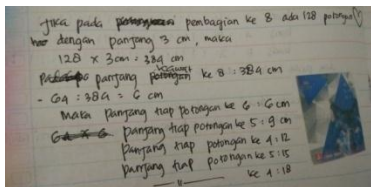 Jika pada pembagian ke 8 ada 128 potongan
dengan panjang 3 cm, maka
128 x 3 cm = 384 cm
panjang ke 8 : 384 cm
- 64 : 384 = 6 cm
Maka panjang tiap potongan ke 6 : 6 cm
panjang tiap potongan ke 5 : 9 cm
panjang tiap potongan ke 4 : 12
panjang tiap potongan ke 5 : 15
ke 4 : 18